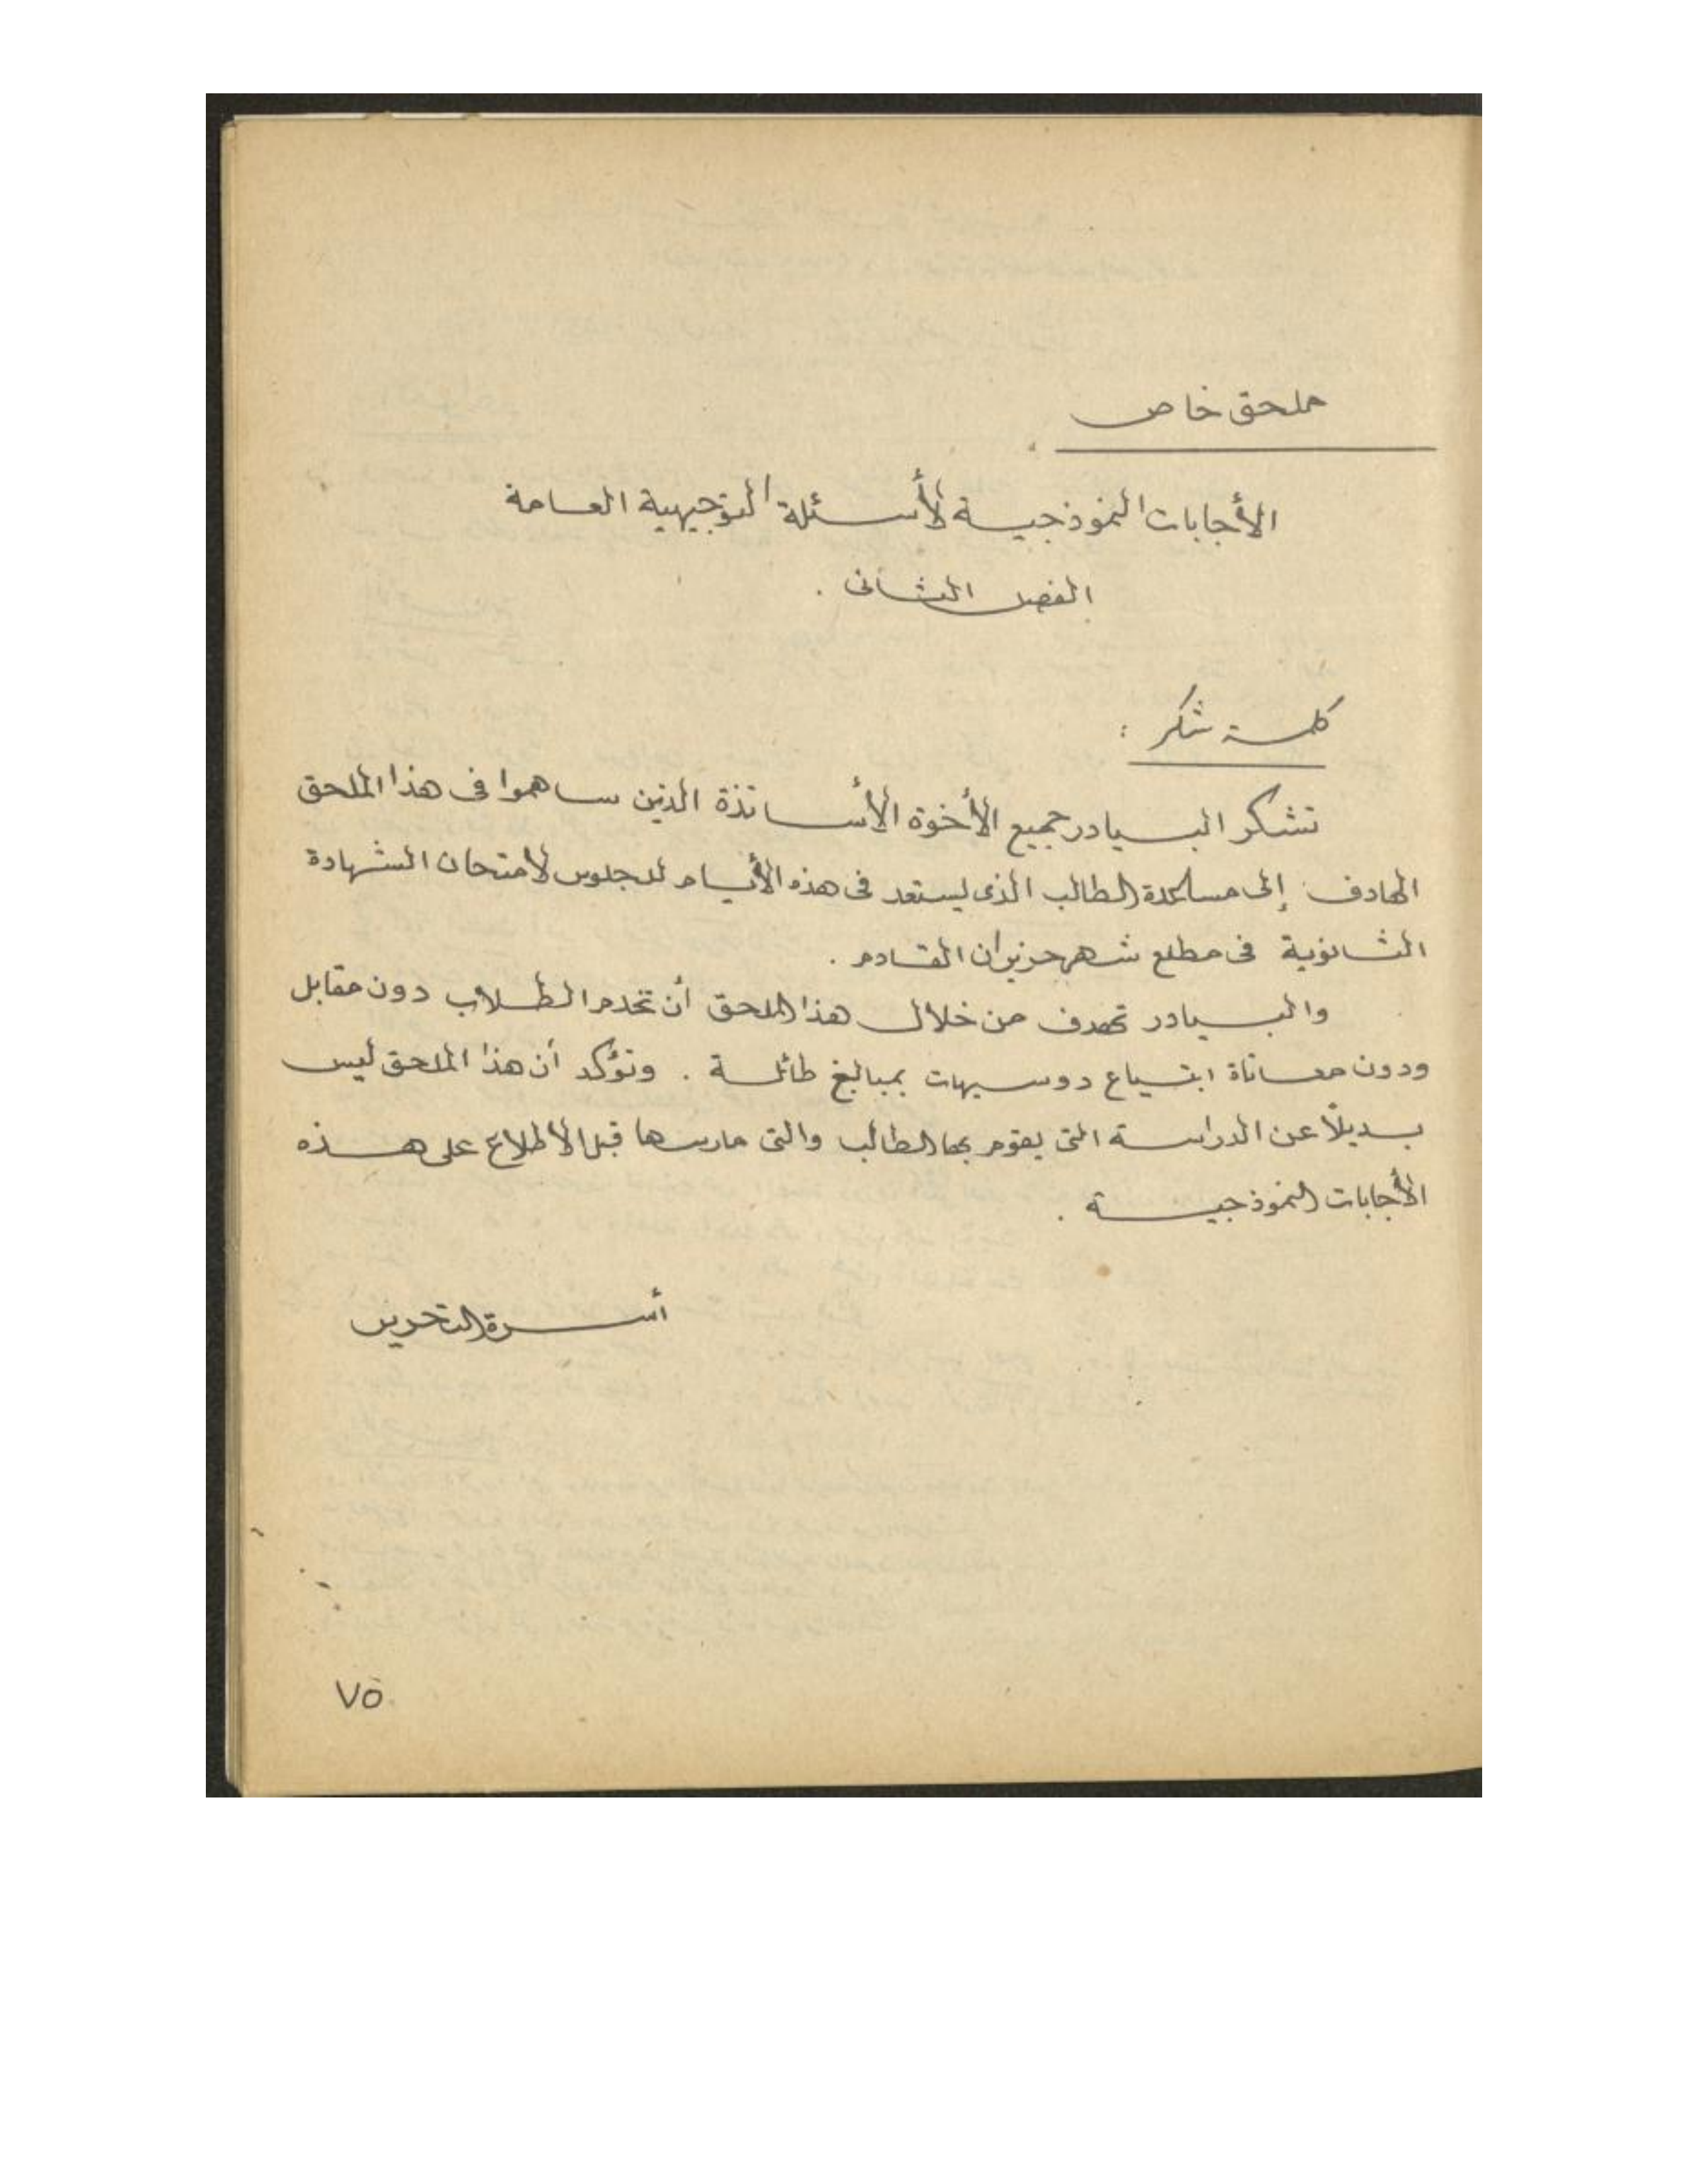 ملحق خاص
الأجابات النموذجية لأسئلة التوجيهية العامة
الفصل الثاني .
كلمة شكر :
تشكر البيادر جميع الأخوة الأساتذة الذين ساهموا في هذا الملحق
الهادف إلى مساعدة الطالب الذي يستعد في هذه الأيام للجلوس لامتحان الشهادة
الثانوية في مطلع شهر حزيران القادم .
والبيادر تهدف من خلال هذا الملحق أن تخدم الطلاب دون مقابل
ودون معاناة ابتياع دوسيهات بمبالغ طائلة . ونؤكد أن هذا الملحق ليس
بديلاً عن الدراسة التي يقوم بها الطالب والتي مارسها قبل الاطلاع على هذه
الأجابات النموذجية .
أسرة التحرير
٧٥